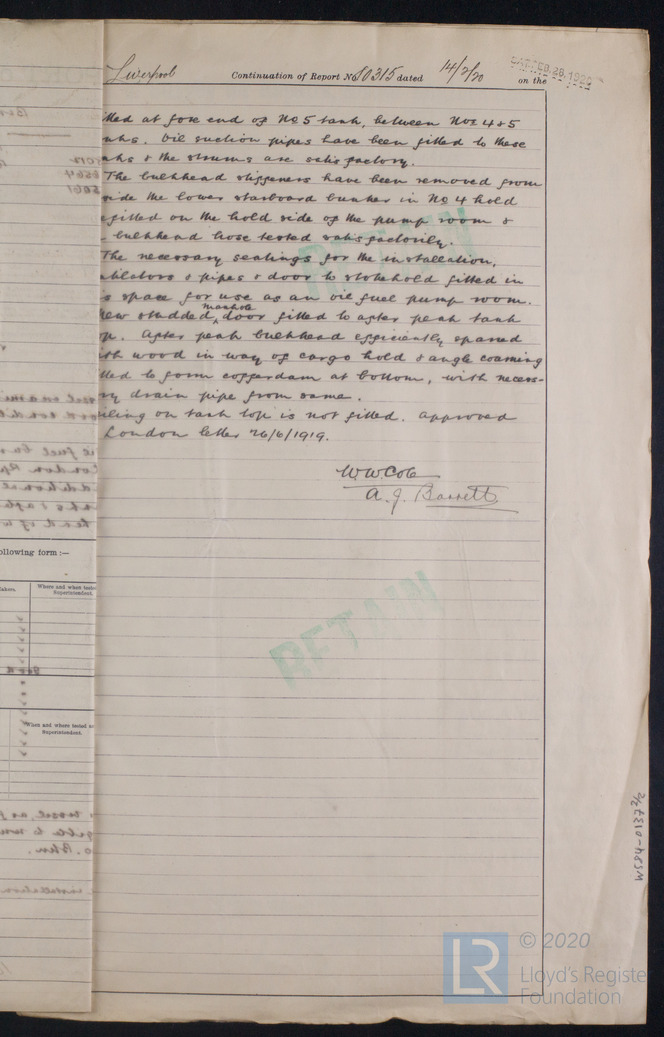 Liverpool Continuation of Report No 80315 dated 14/2/20 on the
SAT. FEB. 28. 1920
tted at fore end of No 5 tank, between Nos 4 & 5
nks. Oil suction pipes have been fitted to these
nks & the strums are satisfactory.
The bulkhead stiffeners have been removed from
side the lower starboard bunker in No 4 hold
efitted on the hold side of the pump room &
bulkhead hose tested satisfactorily.
The necessary seatings for the installation,
ntilators & pipes & door to stokehold fitted in
is space for use as an oil fuel pump room.
manhole
new studded door fitted to after peak tank
op. After peak bulkhead efficiently sparred
ith wood in way of cargo hold & angle coaming
tted to form cofferdam at bottom, with necess-
ry drain pipe from same.
eiling on tank top is not fitted. Approved
London letter 26/6/1919.
W.W. Cole
A. J. Barrett
RETAIN
RETAIN
ollowing form :—
akers.
Where and when tested
Superintendent.
good
When and where tested
Superintendent.
W584-0137 2/2
LR
© 2020
Lloyd's Register
Foundation